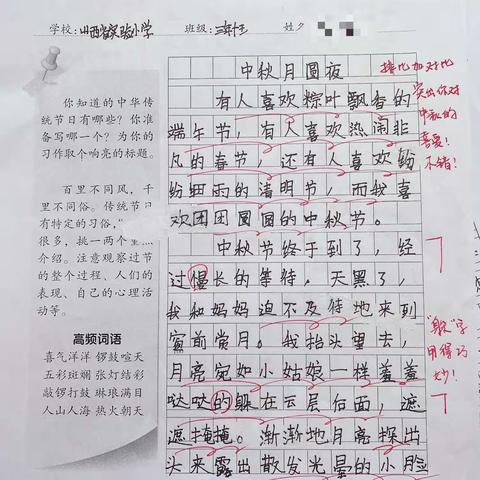 学校:山西省实验小学 班级:三年 姓名
中秋月圆夜
有人喜欢粽叶飘香的
端午节,有人喜欢热闹非
凡的春节,还有人喜欢纷
纷细雨的清明节,而我喜
欢团团圆圆的中秋节。
中秋节终于到了,经
过慢长的等待,天黑了,
我和妈妈迫不及待地来到
窗前赏月。我抬头望去,
月亮宛如小姑娘一样羞羞
哒哒的躲在云层后面,遮
遮掩掩。渐渐地月亮探出
头来露出散发光晕的小脸
排比加对比
突出你对
中秋的
喜爱!
不错!
"躲"字
用得巧
妙!
你知道的中华传
统节日有哪些?你准
备写哪一个?为你的
习作取个响亮的标题。
百里不同风,千
里不同俗。传统节日
有特定的习俗,
很多,挑一两个重点
介绍。注意观察过节
的整个过程、人们的
表现、自己的心理活
动等。
高频词语
喜气洋洋 锣鼓喧天
五彩斑斓 张灯结彩
敲锣打鼓 琳琅满目
人山人海 热火朝天